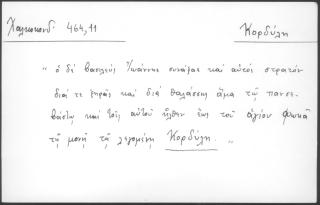 Χαλκοκονδ. 464,11
Κορδύλη
" ὁ δὲ βασιλεὺς Ἰωάννης συνάξας καὶ αὐτὸς στρατὸν
διά τε ξηρᾶς καὶ διὰ θαλάσσης ἅμα τῷ πανσε-
βάστῳ καὶ τοῖς αὐτοῦ ἦλθεν ἕως τοῦ ἁγίου Φωκᾶ
τῇ μονῇ τῇ λεγομένῃ Κορδύλῃ. "